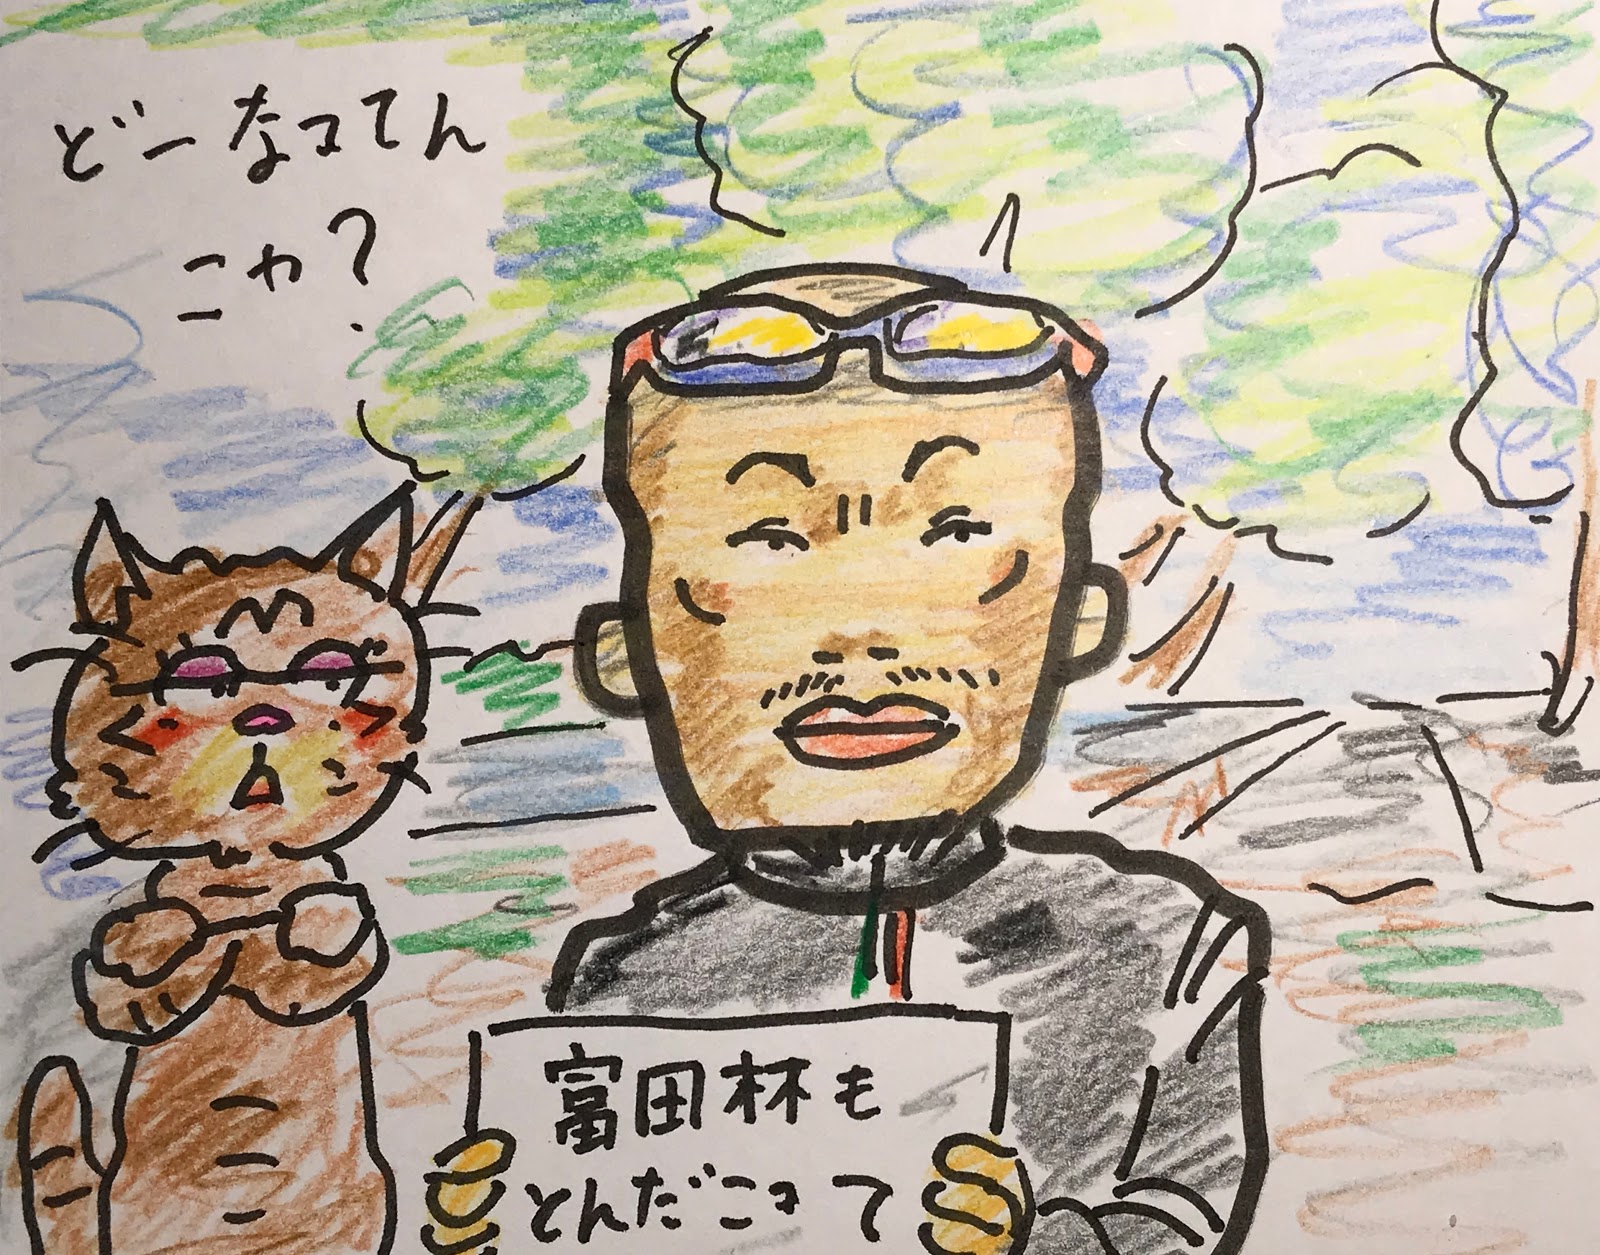 どーなってん
ニャ?
富田杯も
とんだこって